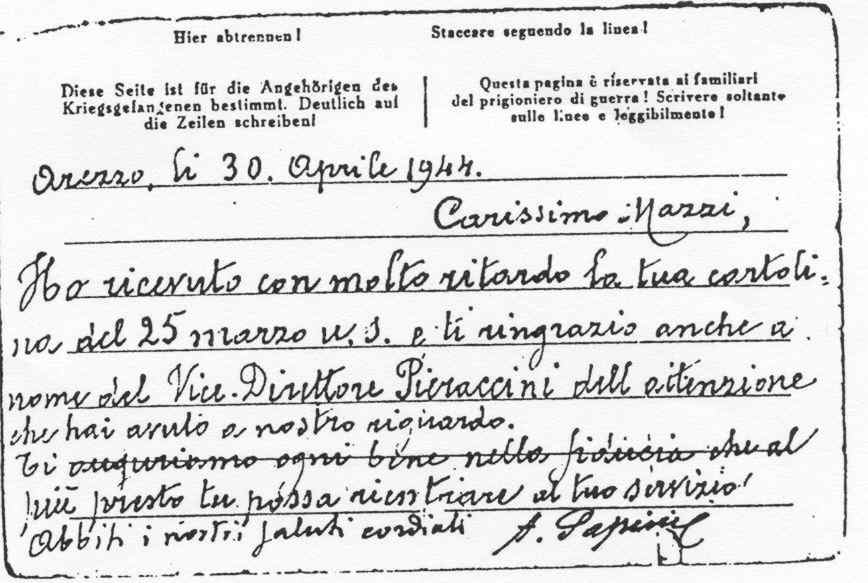 Hier abtrennen!
Staccare seguendo la linea!
Diese Seite ist für die Angehörigen des
Kriegsgefangenen bestimmt. Deutlich auf
die Zeilen schreiben!
Questa pagina è riservata ai familiari
del prigioniero di guerra! Scrivere soltanto
sulle linee e leggibilmente!
Arezzo, li 30. Aprile 1944.
Carissimo Mazzi,
Ho ricevuto con molto ritardo la tua cartoli=
na del 25 marzo u. s. e ti ringrazio anche a
nome del Vice-Direttore Pieraccini dell'attenzione
che hai avuto a nostro riguardo.
Ti auguriamo ogni bene nella fiducia che al
più presto tu possa rientrare al tuo servizio
Abbiti i nostri saluti cordiali
A. Papini